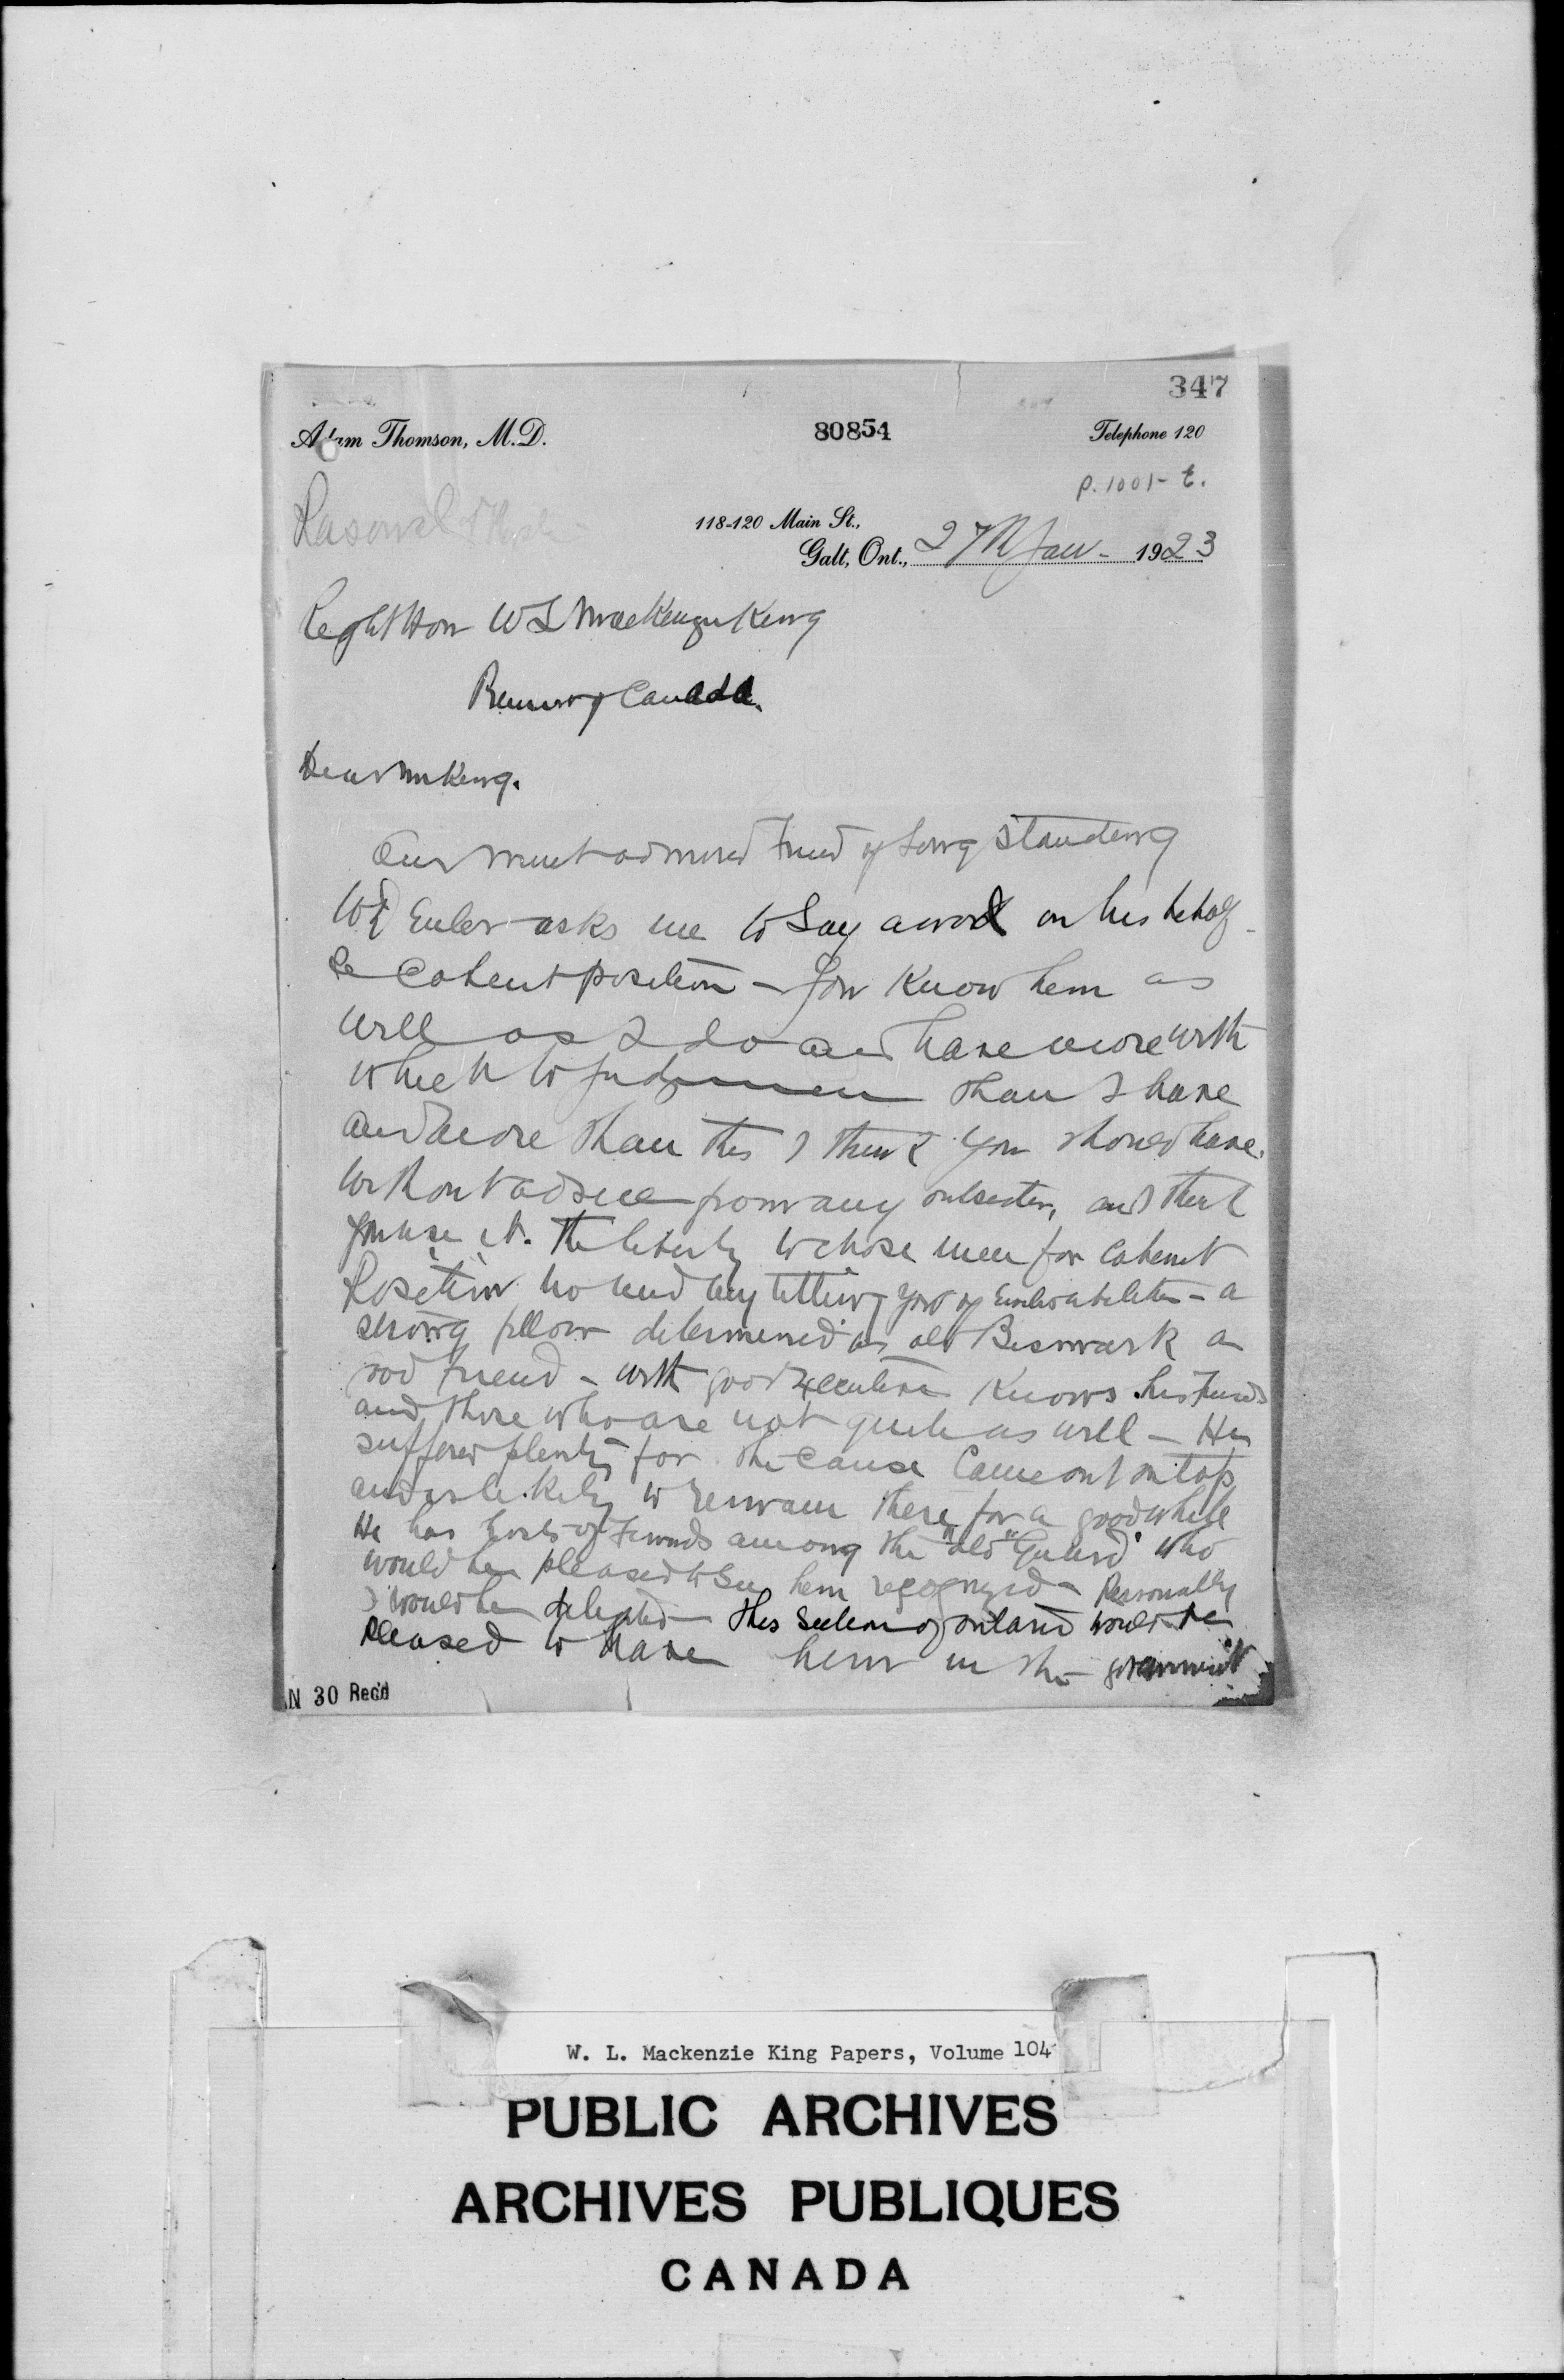 347
Adam Thomson, M.D. 80854 Telephone 120
P. 1001- t.
118-120 Main St.,
Galt, Ont., 27th Jan - 1923
Right Hon W L MacKenzie King
Premier of Canada.
Dear Mr King.
Our admired Friend of Long Standing
W D Euler asks me to Say a word on his behalf
Re Cabinet position - You Know him as
well as I do and have more with
which to judge men than I have
and more than this I think you should have.
without advice from any outsider, and that
you use it. The liberty to chose men for Cabinet
Position no need my telling you of Eulers abilities - a
strong fellow determined as old Bismark a
good Friend - with good Executive Knows his Friends
and those who are not quite as well - He
suffered plenty for the cause Came out on top
and is likely to remain there for a good while
He has hosts of Friends among the "old Guard" who
would be pleased to See him recognized - Personally
I would be delighted - This Section of Ontario would be
pleased to have him in the government
N 30 Rec'd
W. L. Mackenzie King Papers, Volume 104
PUBLIC ARCHIVES
ARCHIVES PUBLIQUES
CANADA